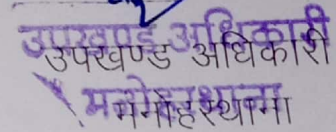 उपखण्ड अधिकारी
उपखण्ड अधिकारी
मनोहरथाना